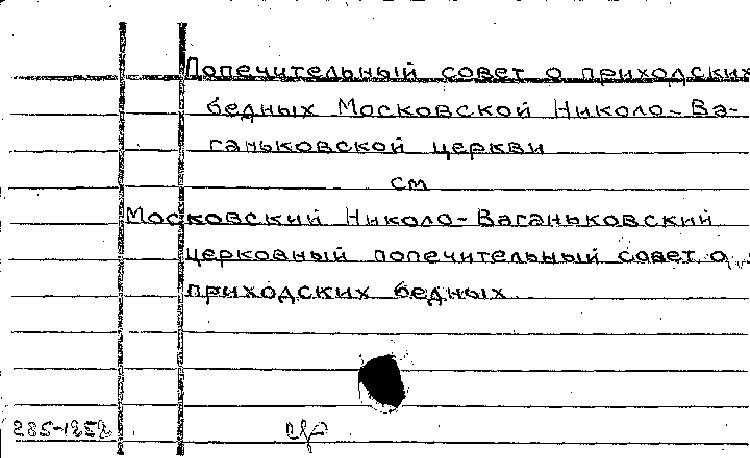 Попечительный совет о приходских
бедных Московской Николо-Ва-
ганьковской церкви
см
Московский Николо-Ваганьковский
церковный попечительный совет о
приходских бедных